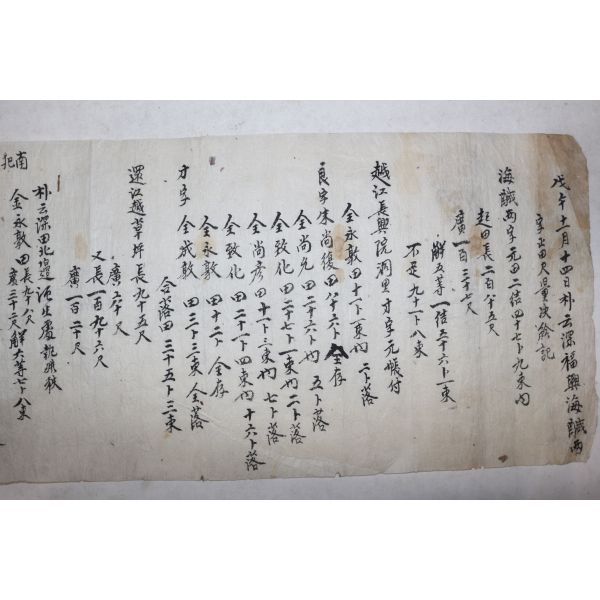 戊午十二月十四日朴云深福興海醎兩
字正田尺量決給記
海醎兩字元田二結四十七卜九束內
起田長二百八十五尺
廣一百三十七尺
解五等一結五十六卜一束
不足九十一卜八束
越江長興院洞里才字元帳付
金永敦田十一卜一束內 二卜落
良字朱尚俊田八十六卜 全存
金尚允田二十六卜內 五卜落
金致化田二十七卜二束內二卜落
金尚彥田十一卜三束內 七卜落
全致化田二十一卜四束內十六卜落
金永敦田十二卜 全存
才字 金成敦田三十三束 全落
合落田三十五卜三束
還江越草坪長九十五尺
廣六十尺
又長一百九十六尺
廣一百二十尺
朴云深田北邊
金永敦田長九十八尺
廣三十二尺解六等七卜八束
南犯